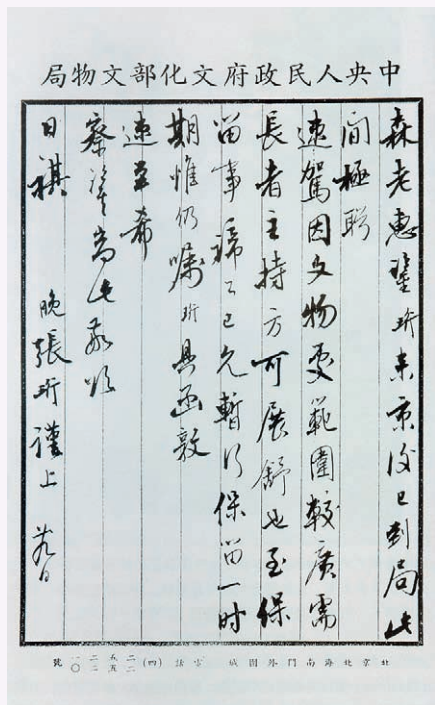 中央人民政府文化部文物局
森老惠鑒珩来京後已到局此
间極盼
速驾因文物處範圍較廣需
長者主持方可展舒也至保
留事諦公已允暫行保留一时
期惟仍嘱珩具函敦
速並希
察鑒耑此敬頌
日祺
晚張珩謹上 廿九日
北京北海南門外團城 電話(四)二五二一 二五二〇 號